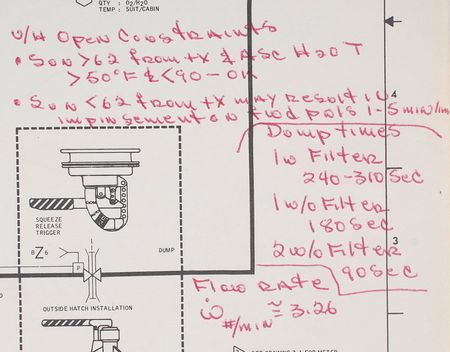 QTY : O2/H2O
TEMP : SUIT/CABIN
W/H Open Constraints
• Sun >62 from +X & ASC H20 T
>50°F & <90 - OK
• Sun <62 from +X may result in
impingement on fwd pals 1-5 min/lm
Dump times
1 w Filter
240-310 Sec
1 w/o Filter
180 Sec
2 w/o Filter
90 Sec
Flow Rate
ẇ #/min ≅ 3.26
4
3
SQUEEZE
RELEASE
TRIGGER
8Z6
P
DUMP
OUTSIDE HATCH INSTALLATION